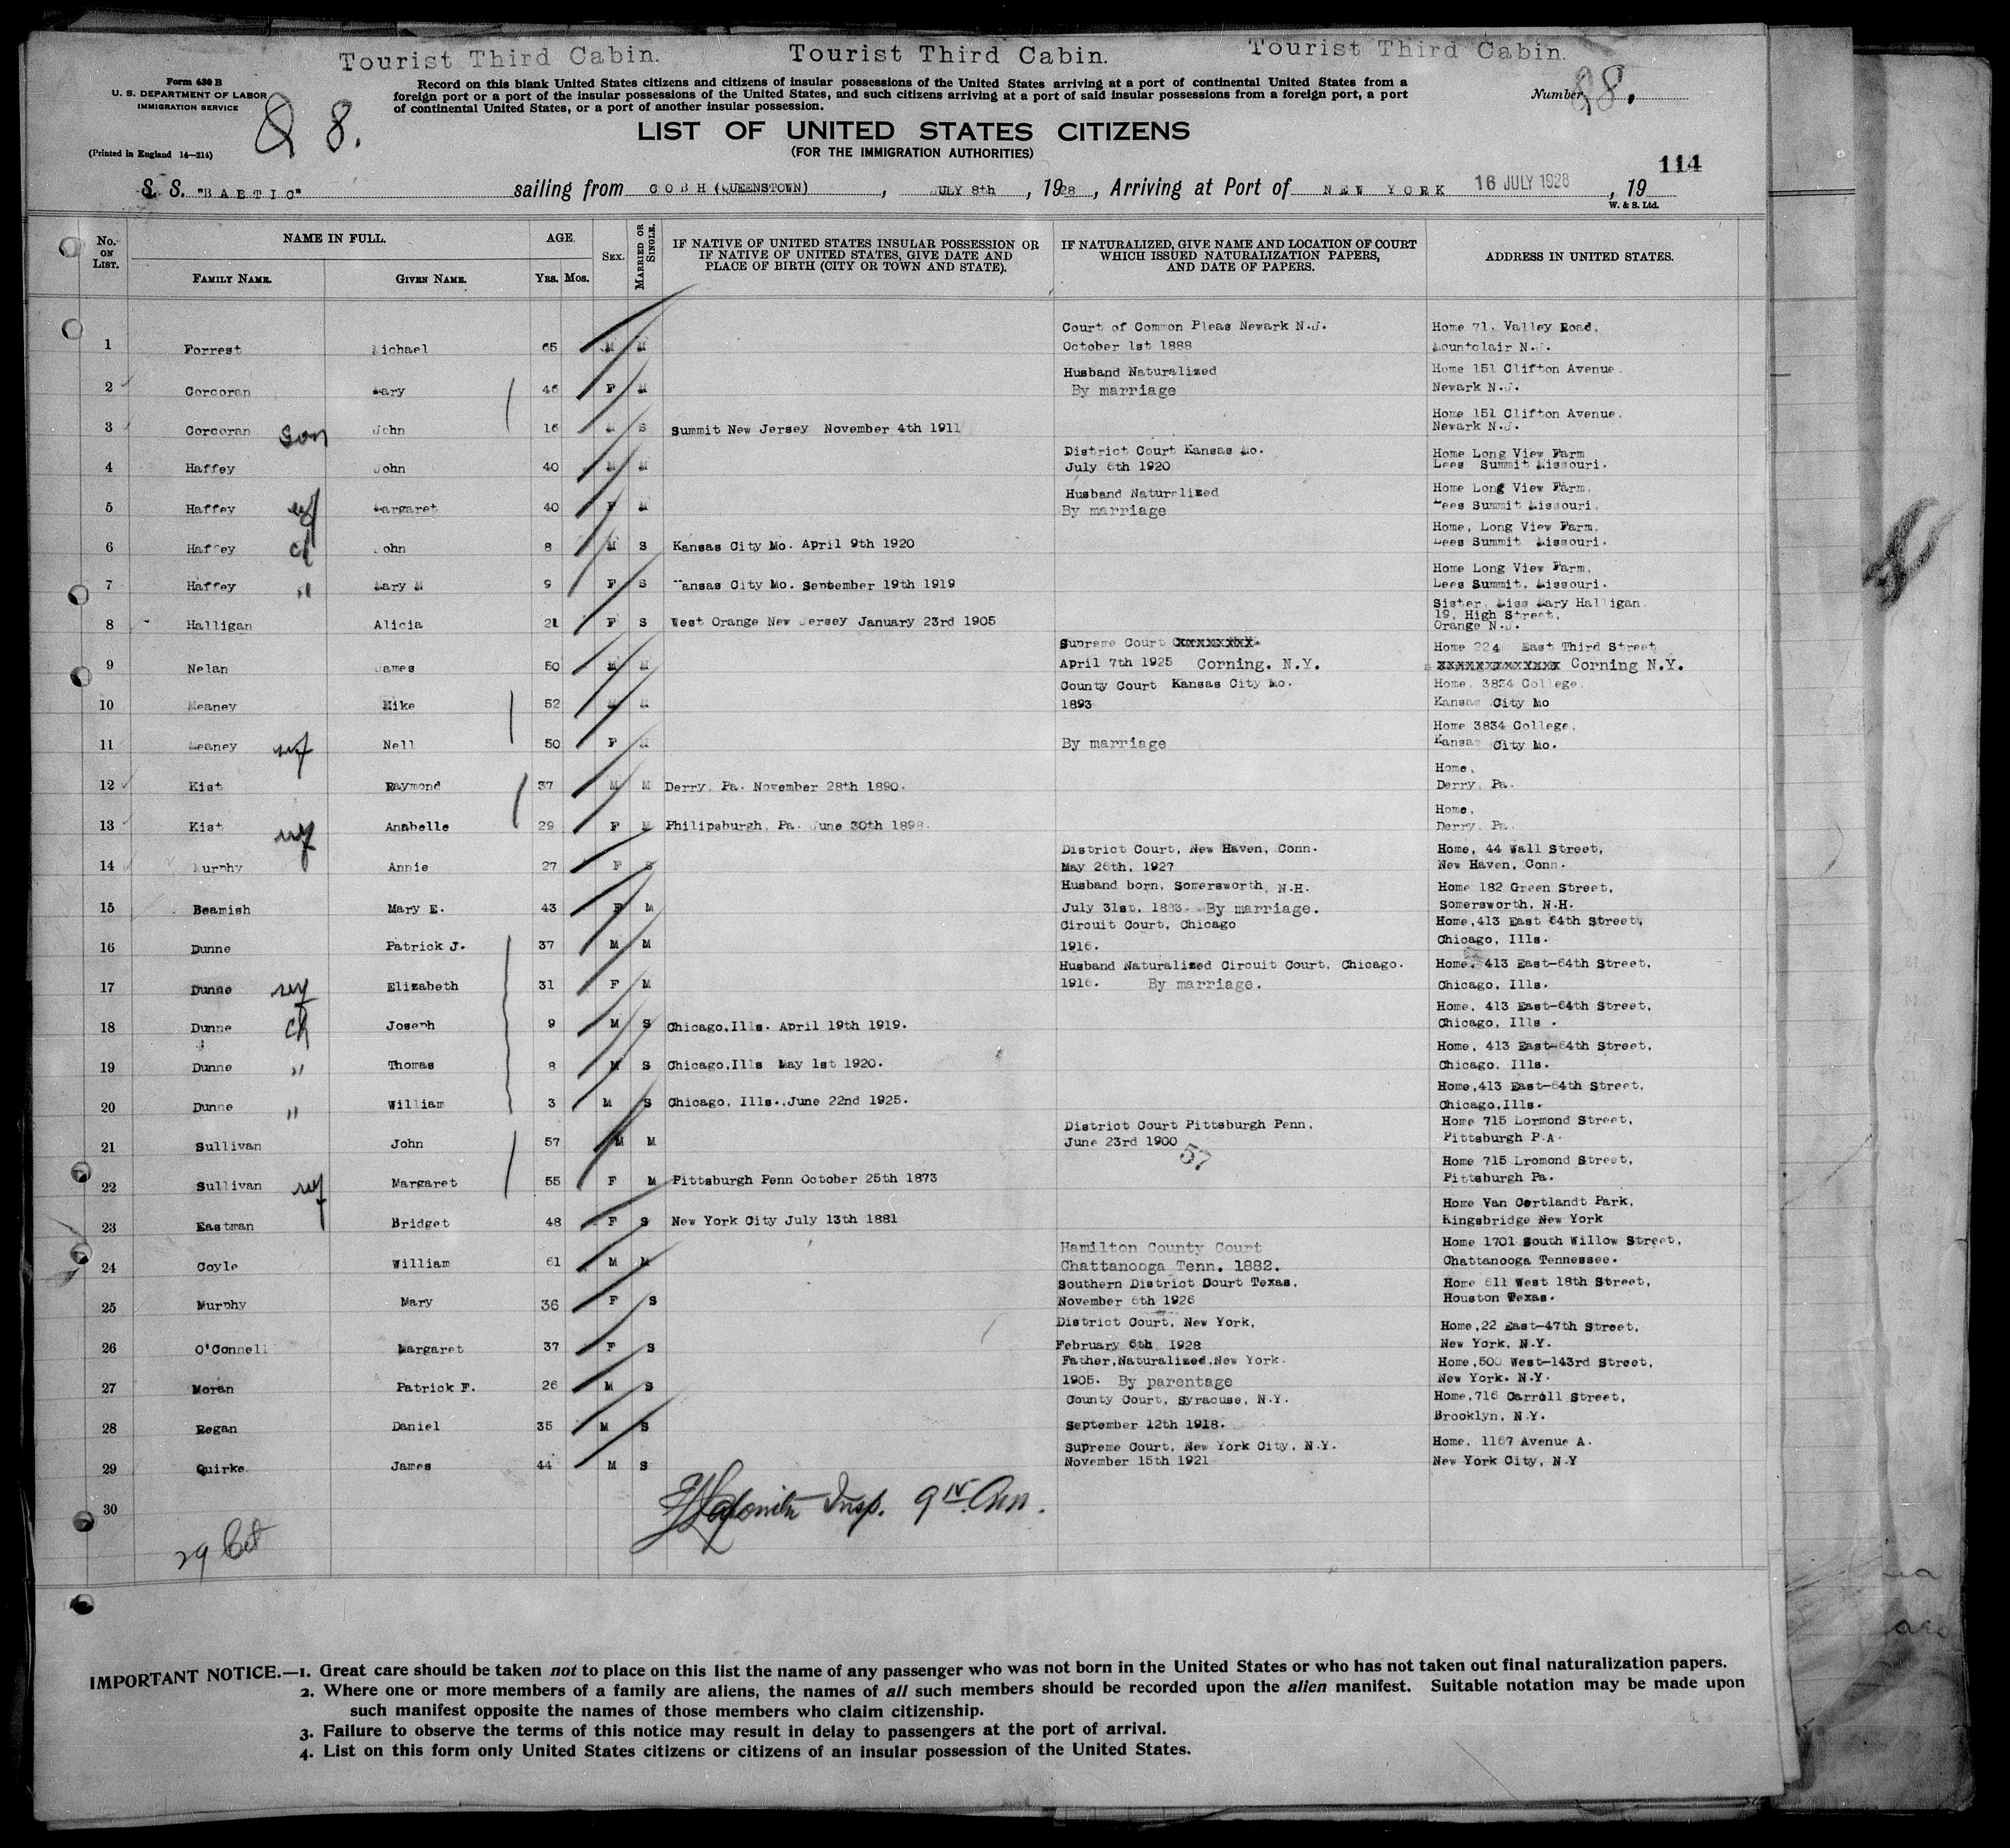 Tourist Third Cabin. Tourist Third Cabin. Tourist Third Cabin.
Form 630 B
U. S. DEPARTMENT OF LABOR
IMMIGRATION SERVICE
(Printed in England 14—214)
8.
Record on this blank United States citizens and citizens of insular possessions of the United States arriving at a port of continental United States from a
foreign port or a port of the insular possessions of the United States, and such citizens arriving at a port of said insular possessions from a foreign port, a port
of continental United States, or a port of another insular possession.
Number 28.
LIST OF UNITED STATES CITIZENS
(FOR THE IMMIGRATION AUTHORITIES)
114
S. S. "BALTIC" sailing from COBH (QUEENSTOWN), JULY 8th, 1928, Arriving at Port of NEW YORK 16 JULY 1928, 19
W. & S. Ltd.
No. ON LIST. NAME IN FULL. FAMILY NAME. GIVEN NAME. AGE. YRS. MOS. SEX. MARRIED OR SINGLE. IF NATIVE OF UNITED STATES INSULAR POSSESSION OR IF NATIVE OF UNITED STATES, GIVE DATE AND PLACE OF BIRTH (CITY OR TOWN AND STATE). IF NATURALIZED, GIVE NAME AND LOCATION OF COURT WHICH ISSUED NATURALIZATION PAPERS, AND DATE OF PAPERS. ADDRESS IN UNITED STATES.
Court of Common Pleas Newark N.J. Home 71. Valley Road,
1 Forrest Michael 65 M M October 1st 1888 Mountclair N.J.
Husband Naturalized Home 151 Clifton Avenue.
2 Corcoran Mary 46 F M By marriage Newark N.J.
Home 151 Clifton Avenue.
3 Corcoran son John 16 M S Summit New Jersey November 4th 1911 Newark N.J.
District Court Kansas Mo. Home Long View Farm
4 Haffey John 40 M M July 6th 1920 Lees Summit Missouri.
Husband Naturalized Home Long View Farm.
5 Haffey wf Margaret 40 F M By marriage Lees Summit Missouri.
Home, Long View Farm.
6 Haffey ch John 8 M S Kansas City Mo. April 9th 1920 Lees Summit Missouri.
Home Long View Farm.
7 Haffey " Mary M 9 F S Kansas City Mo. September 19th 1919 Lees Summit, Missouri.
Sister, Miss Mary Halligan.
19, High Street,
8 Halligan Alicia 21 F S West Orange New Jersey January 23rd 1905 Orange N.J.
Supreme Court xxxxxxxx. Home 224 East Third Street
9 Nelan James 50 M M April 7th 1925 Corning. N.Y. xxxxxxxxxxxxx Corning N.Y.
County Court Kansas City Mo. Home. 3834 College.
10 Meaney Mike 52 M M 1893 Kansas City Mo
Home 3834 College,
11 Meaney wf Nell 50 F M By marriage Kansas City Mo.
Home,
12 Kist Raymond 37 M M Derry, Pa. November 28th 1890. Derry, Pa.
Home,
13 Kist wf Anabelle 29 F M Philipsburgh, Pa. June 30th 1898. Derry, Pa.
District Court, New Haven, Conn. Home, 44 Wall Street,
14 Murphy Annie 27 F S May 26th, 1927 New Haven, Conn.
Husband born, Somersworth, N.H. Home 182 Green Street,
15 Beamish Mary E. 43 F M July 31st, 1883. By marriage. Somersworth, N.H.
Circuit Court, Chicago Home,413 East 64th Street,
16 Dunne Patrick J. 37 M M 1916. Chicago, Ills.
Husband Naturalized Circuit Court, Chicago. Home, 413 East-64th Street,
17 Dunne wf Elizabeth 31 F M 1916. By marriage. Chicago, Ills.
Home, 413 East-64th Street,
18 Dunne ch Joseph 9 M S Chicago,Ills. April 19th 1919. Chicago, Ills .
Home, 413 East-64th Street,
19 Dunne " Thomas 8 M S Chicago,Ills May 1st 1920. Chicago, Ills.
Home,413 East-64th Street,
20 Dunne " William 3 M S Chicago, Ills. June 22nd 1925. Chicago,Ills.
District Court Pittsburgh Penn. Home 715 Lormond Street,
21 Sullivan John 57 M M June 23rd 1900 57 Pittsburgh P.A.
Home 715 Lromond Street,
22 Sullivan wf Margaret 55 F M Pittsburgh Penn October 25th 1873 Pittsburgh Pa.
Home Van Cortlandt Park,
23 Eastman Bridget 48 F S New York City July 13th 1881 Kingsbridge New York
Hamilton County Court Home 1701 South Willow Street,
24 Coyle William 61 M M Chattanooga Tenn. 1882. Chattanooga Tennessee.
Southern District Court Texas. Home 611 West 18th Street,
25 Murphy Mary 36 F S November 6th 1926 Houston Texas.
District Court, New York, Home,22 East-47th Street,
26 O'Connell Margaret 37 F S February 6th, 1928 New York, N.Y.
Father,Naturalized,New York. Home,500 West-143rd Street,
27 Moran Patrick F. 26 M S 1905. By parentage New York. N.Y.
County Court, Syracuse, N.Y. Home,716 Carroll Street,
28 Regan Daniel 35 M S September 12th 1918. Brooklyn, N.Y.
Supreme Court, New York City, N.Y. Home, 1167 Avenue A.
29 Quirke James 44 M S November 15th 1921 New York City, N.Y
30
Insp.
29 Cit
IMPORTANT NOTICE.—1. Great care should be taken not to place on this list the name of any passenger who was not born in the United States or who has not taken out final naturalization papers.
2. Where one or more members of a family are aliens, the names of all such members should be recorded upon the alien manifest. Suitable notation may be made upon
such manifest opposite the names of those members who claim citizenship.
3. Failure to observe the terms of this notice may result in delay to passengers at the port of arrival.
4. List on this form only United States citizens or citizens of an insular possession of the United States.